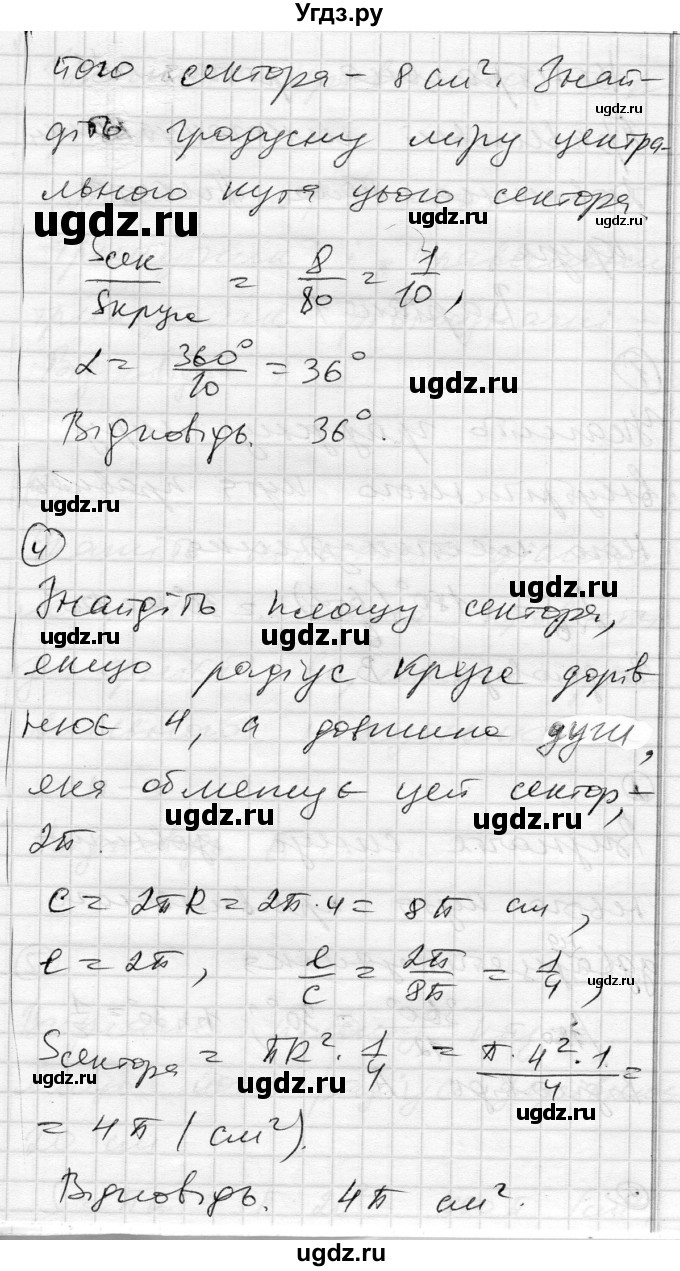 Угдз.ру
того сектора – 8 см². Знай-
діть градусну міру центра-
льного кута цього сектора.
ugdz.ru ugdz.ru
Sсек/Sкруга = 8/80 = 1/10,
α = 360°/10 = 36°
ugdz.ru
Відповідь. 36°.
ugdz.ru
4
ugdz.ru
Знайдіть площу сектора,
ugdz.ru ugdz.ru
якщо радіус круга дорів
нює 4, а довжина дуги,
яка обмежує цей сектор, –
ugdz.ru ugdz.ru
2π.
C = 2πR = 2π·4 = 8π см,
ℓ = 2π, ℓ/C = 2π/8π = 1/4,
ugdz.ru
Sсектора = πR²·1/4 = π·4²·1/4 =
ugdz.ru ugdz.ru ugdz.ru
= 4π (см²).
Відповідь. 4π см².
ugdz.ru